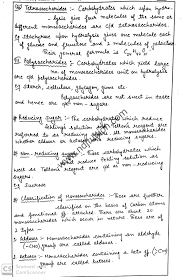 Tetrasaccharides :- Carbohydrates which upon hydro-
lysis give four molecules of the same or
different monosaccharides are c/a tetrasaccharides.
Eg Stachyrose upon hydrolysis gives one molecule each
of glucose and fructose and 2 molecules of galactose
Their general formula is
Polysaccharides :- Carbohydrates which yield large
no. of monosaccharide unit on hydrolysis
are c/a polysaccharides.
Eg Starch, cellulose, glycogen, gums etc
Polysaccharides are not sweet in taste
and hence are non-sugars.
Reducing Sugars :- The carbohydrates which reduce
fehling solution or Tollens reagent are
referred to as reducing sugars. All monosaccharides
whether aldoses or ketoses are reducing sugars.
Non-reducing sugars :- Those carbohydrates which
do not reduce fehling solution as
well as Tollens reagent are c/a non-reducing
sugars.
Eg Sucrose
Classification of Monosaccharides :- These are further
classified on the basis of carbon atoms
and functional gp attached. There are about 20
monosaccharides which occur in nature. These are of
2 types -
Aldoses :- Monosaccharides containing an aldehyde
(-CHO) group are called aldoses.
Ketoses :- Monosaccharides containing a keto
group are called ketoses.
CS